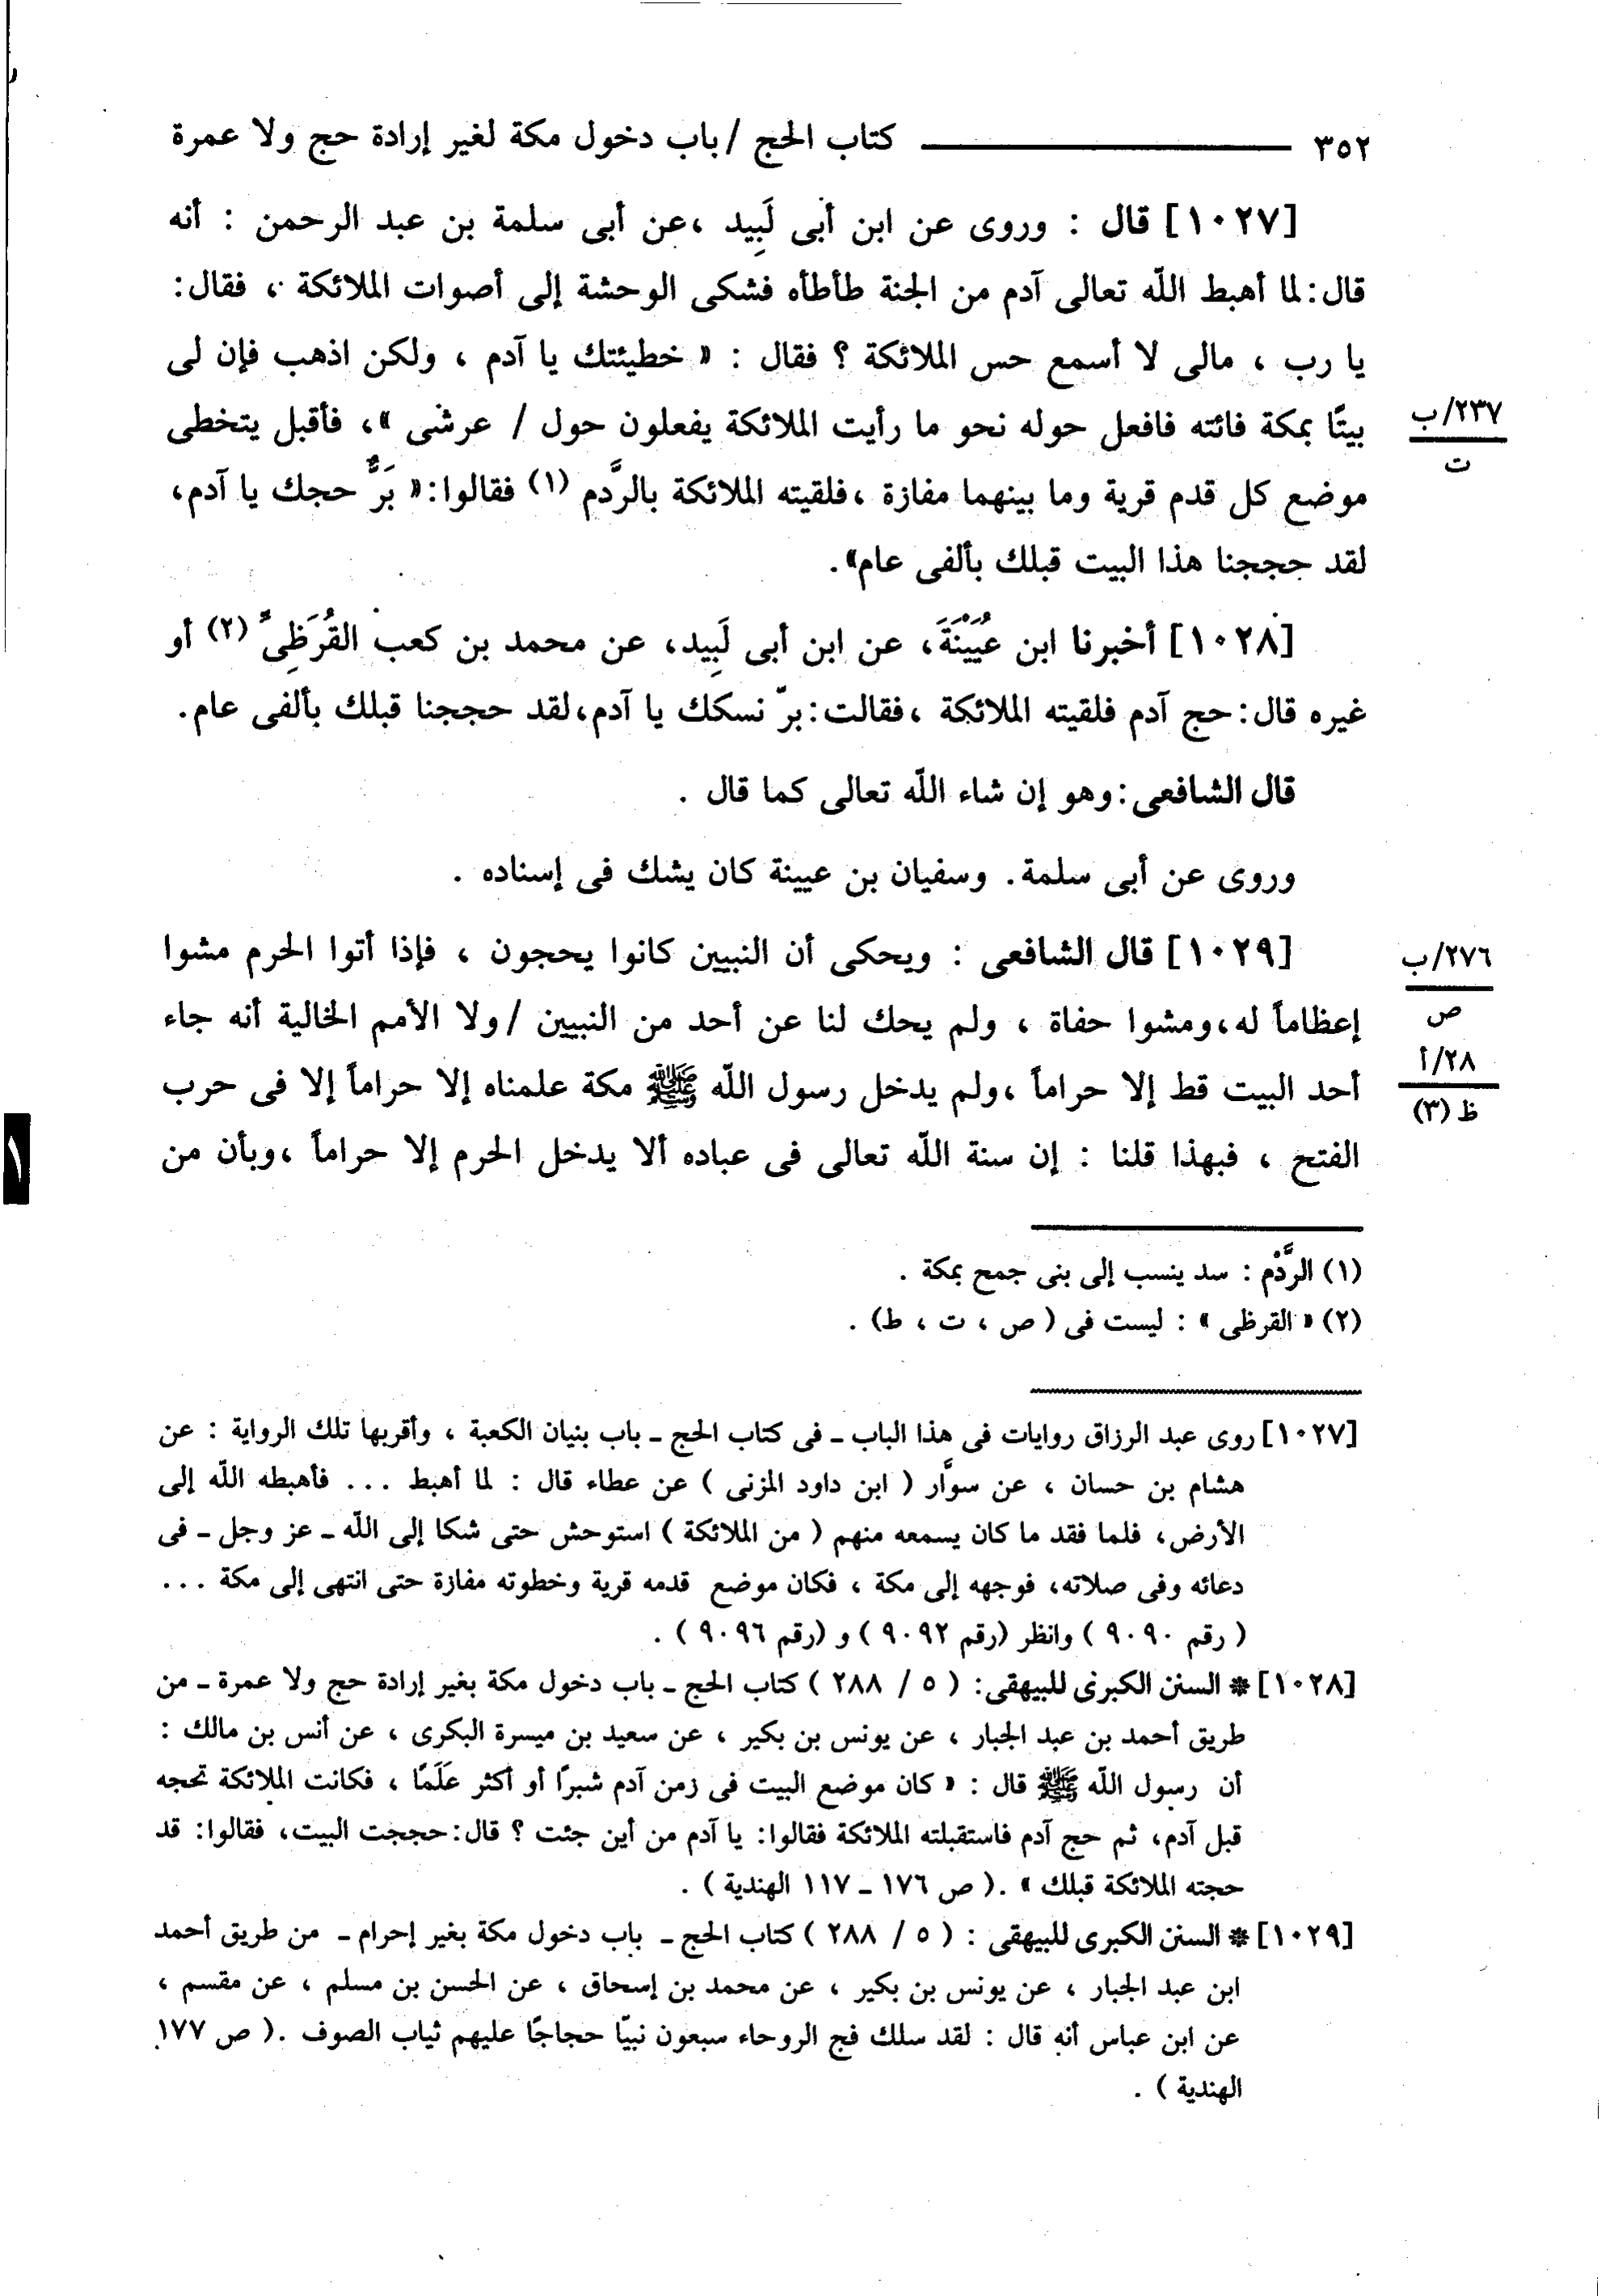 ٣٥٢ كتاب الحج / باب دخول مكة لغير إرادة حج ولا عمرة
[١٠٢٧] قال : وروى عن ابن أبى لَبِيد ، عن أبى سلمة بن عبد الرحمن : أنه
قال : لما أهبط اللّه تعالى آدم من الجنة طأطأه فشكى الوحشة إلى أصوات الملائكة ، فقال :
يا رب ، مالى لا أسمع حس الملائكة ؟ فقال : « خطيئتك يا آدم ، ولكن اذهب فإن لى
بيتًا بمكة فائته فافعل حوله نحو ما رأيت الملائكة يفعلون حول / عرشى » ، فأقبل يتخطى
٢٣٧/ب
ت
موضع كل قدم قرية وما بينهما مفازة ، فلقيته الملائكة بالرَّدم (١) فقالوا : « بَرٌّ حجك يا آدم ،
لقد حججنا هذا البيت قبلك بألفى عام» .
[١٠٢٨] أخبرنا ابن عُيَيْنَةَ ، عن ابن أبى لَبِيد ، عن محمد بن كعب القُرَظِىِّ (٢) أو
غيره قال : حج آدم فلقيته الملائكة ، فقالت : برّ نسكك يا آدم ، لقد حججنا قبلك بألفى عام .
قال الشافعى : وهو إن شاء اللّه تعالى كما قال .
وروى عن أبى سلمة . وسفيان بن عيينة كان يشك فى إسناده .
[١٠٢٩] قال الشافعى : ويحكى أن النبيين كانوا يحجون ، فإذا أتوا الحرم مشوا
٢٧٦/ب
ص
إعظاماً له ، ومشوا حفاة ، ولم يحك لنا عن أحد من النبيين / ولا الأمم الخالية أنه جاء
٢٨/أ
ظ (٣)
أحد البيت قط إلا حراماً ، ولم يدخل رسول اللّه ﷺ مكة علمناه إلا حراماً إلا فى حرب
الفتح ، فبهذا قلنا : إن سنة اللّه تعالى فى عباده ألا يدخل الحرم إلا حراماً ، وبأن من
(١) الرَّدْم : سد ينسب إلى بنى جمح بمكة .
(٢) « القرظى » : ليست فى ( ص ، ت ، ط ) .
[١٠٢٧] روى عبد الرزاق روايات فى هذا الباب ـ فى كتاب الحج ـ باب بنيان الكعبة ، وأقربها تلك الرواية : عن
هشام بن حسان ، عن سوَّار ( ابن داود المزنى ) عن عطاء قال : لما أهبط ... فأهبطه اللّه إلى
الأرض ، فلما فقد ما كان يسمعه منهم ( من الملائكة ) استوحش حتى شكا إلى اللّه ـ عز وجل ـ فى
دعائه وفى صلاته ، فوجهه إلى مكة ، فكان موضع قدمه قرية وخطوته مفازة حتى انتهى إلى مكة ...
( رقم ٩٠٩٠ ) وانظر (رقم ٩٠٩٢ ) و (رقم ٩٠٩٦ ) .
[١٠٢٨] * السنن الكبرى للبيهقى : ( ٥ / ٢٨٨ ) كتاب الحج ـ باب دخول مكة بغير إرادة حج ولا عمرة ـ من
طريق أحمد بن عبد الجبار ، عن يونس بن بكير ، عن سعيد بن ميسرة البكرى ، عن أنس بن مالك :
أن رسول اللّه ﷺ قال : « كان موضع البيت فى زمن آدم شبرًا أو أكثر عَلَمًا ، فكانت الملائكة تحجه
قبل آدم ، ثم حج آدم فاستقبلته الملائكة فقالوا : يا آدم من أين جئت ؟ قال : حججت البيت ، فقالوا : قد
حجته الملائكة قبلك » . ( ص ١٧٦ ـ ١١٧ الهندية ) .
[١٠٢٩] * السنن الكبرى للبيهقى : ( ٥ / ٢٨٨ ) كتاب الحج ـ باب دخول مكة بغير إحرام ـ من طريق أحمد
ابن عبد الجبار ، عن يونس بن بكير ، عن محمد بن إسحاق ، عن الحسن بن مسلم ، عن مقسم ،
عن ابن عباس أنه قال : لقد سلك فج الروحاء سبعون نبيًا حجاجًا عليهم ثياب الصوف . ( ص ١٧٧
الهندية ) .